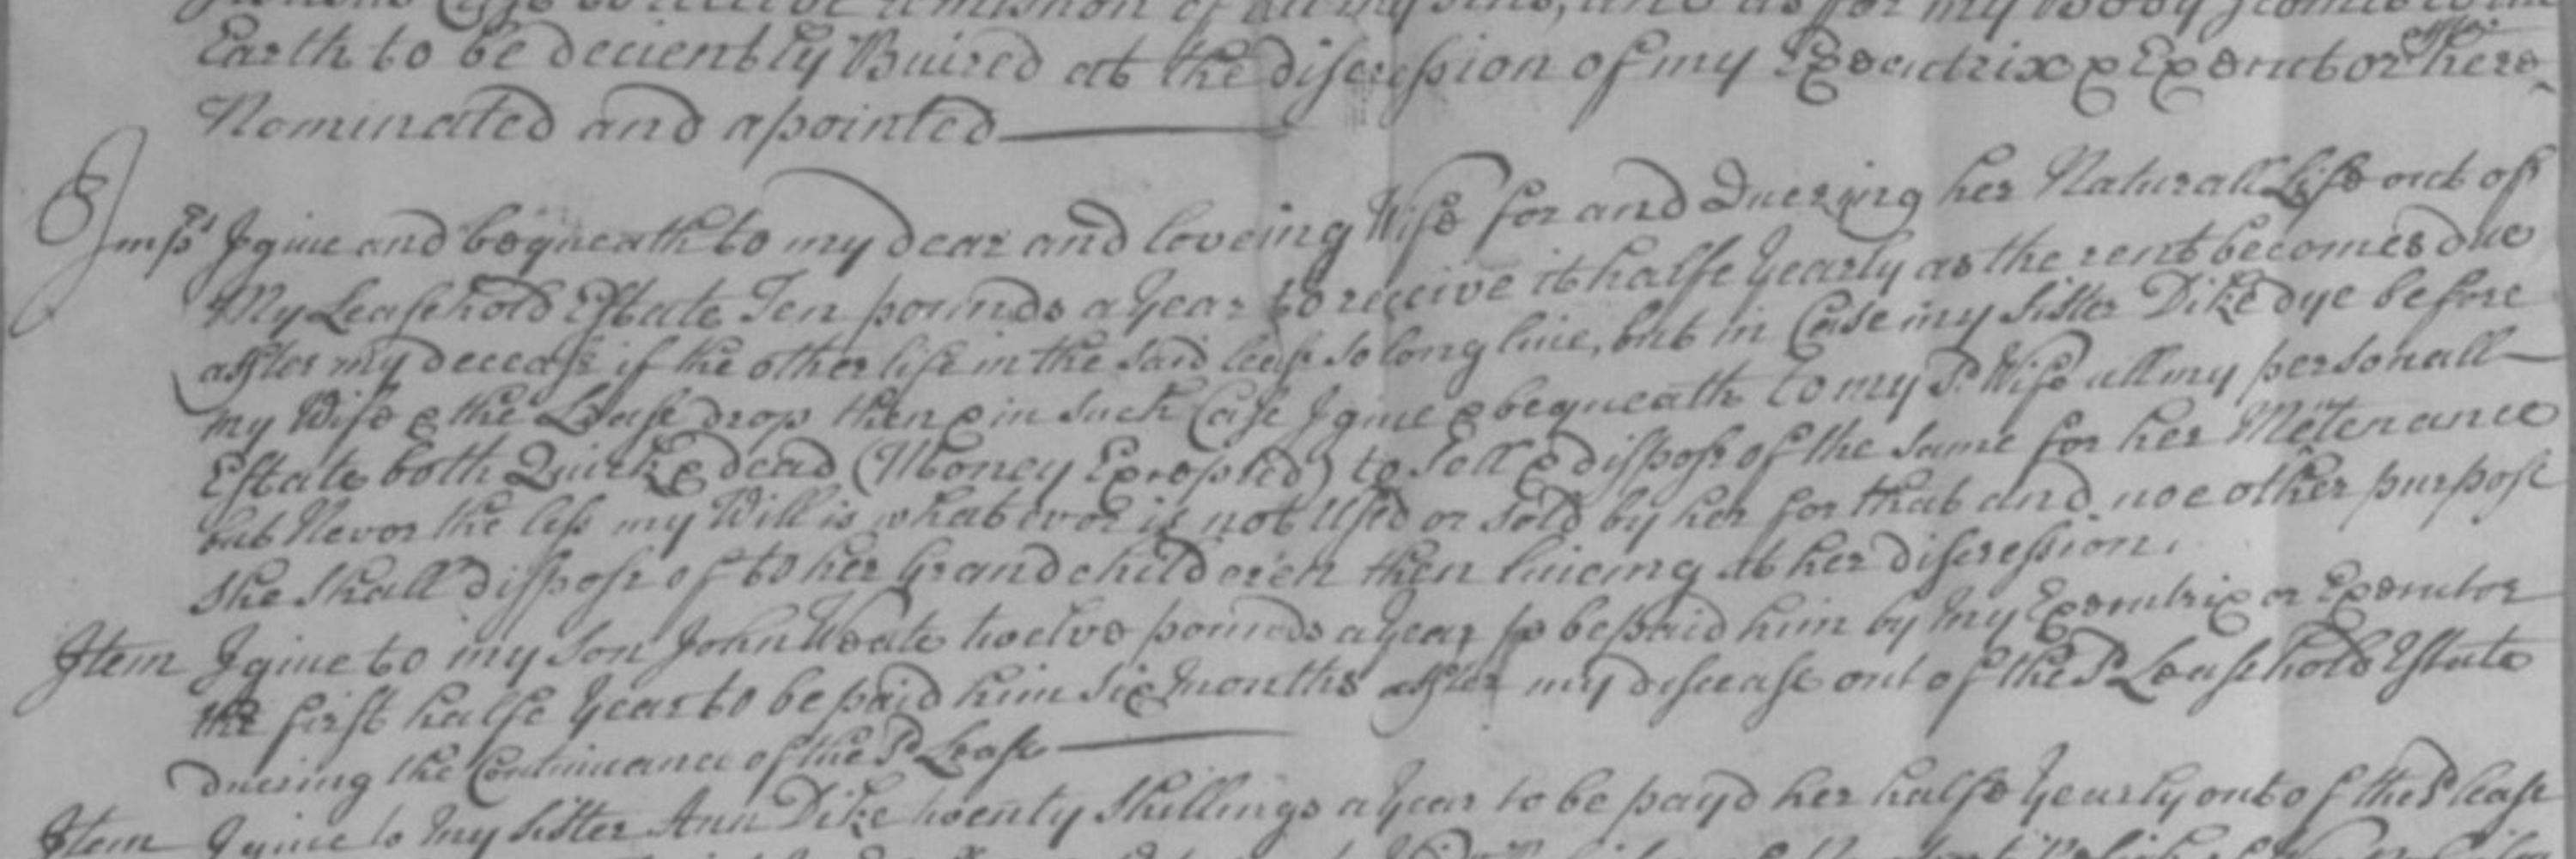 remission of all my sins, and as for my Body
Earth to be deciently Buired at the discression of my Executrix & Executor after here
Nominated and apointed
Imps I give and beqneath to my Dear and loveing Wife for and Duering her Naturall Life out of
My Leasehold Estate Ten pounds a Year to receive it halfe Yearly as the rent becomes due
after my decease if the other life in the said lease so long live, but in Case my Sister Dike dye before
my Wife & the Lease drop then & in such Case I give & bequeath to my Sd Wife all my personall
Estate both Quick & dead (Money Excepted) to Sell & dispose of the same for her Metenance
but Never the less my Will is what ever is not Used or sold by her for that and noe other purpose
She shall dispose of to her Grandchilderen then liveing at her discression.
Item I give to my Son John Weate twelve pounds a Year to be paid him by my Executrix or Executor
the first halfe Year to be paid him Six Months after my decease out of the Sd Leasehold Estate
duering the Continuance of the Sd Lease
Item I give to my Sister Ann Dike twenty Shillings a Year to be payd her halfe Yearly out of the Sd lease